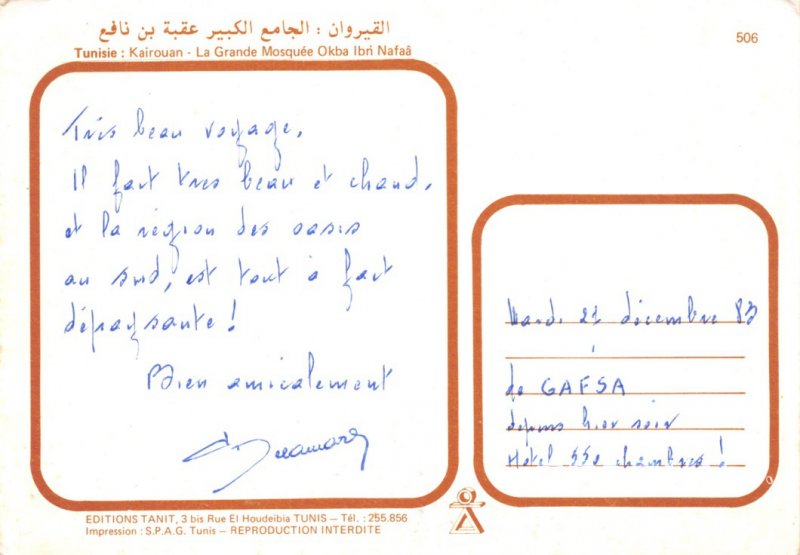 القيروان : الجامع الكبير عقبة بن نافع
Tunisie : Kairouan - La Grande Mosquée Okba Ibn Nafaâ
506
Très beau voyage.
Il fait tres beau et chaud,
et la région des oasis
au sud, est tout à fait
dépaysante !
Bien amicalement
Mardi 27 décembre 83
de GAFSA
depuis hier soir
Hotel 550 chambres !
EDITIONS TANIT, 3 bis Rue El Houdeibia TUNIS - Tél. : 255.856
Impression : S.P.A.G. Tunis - REPRODUCTION INTERDITE